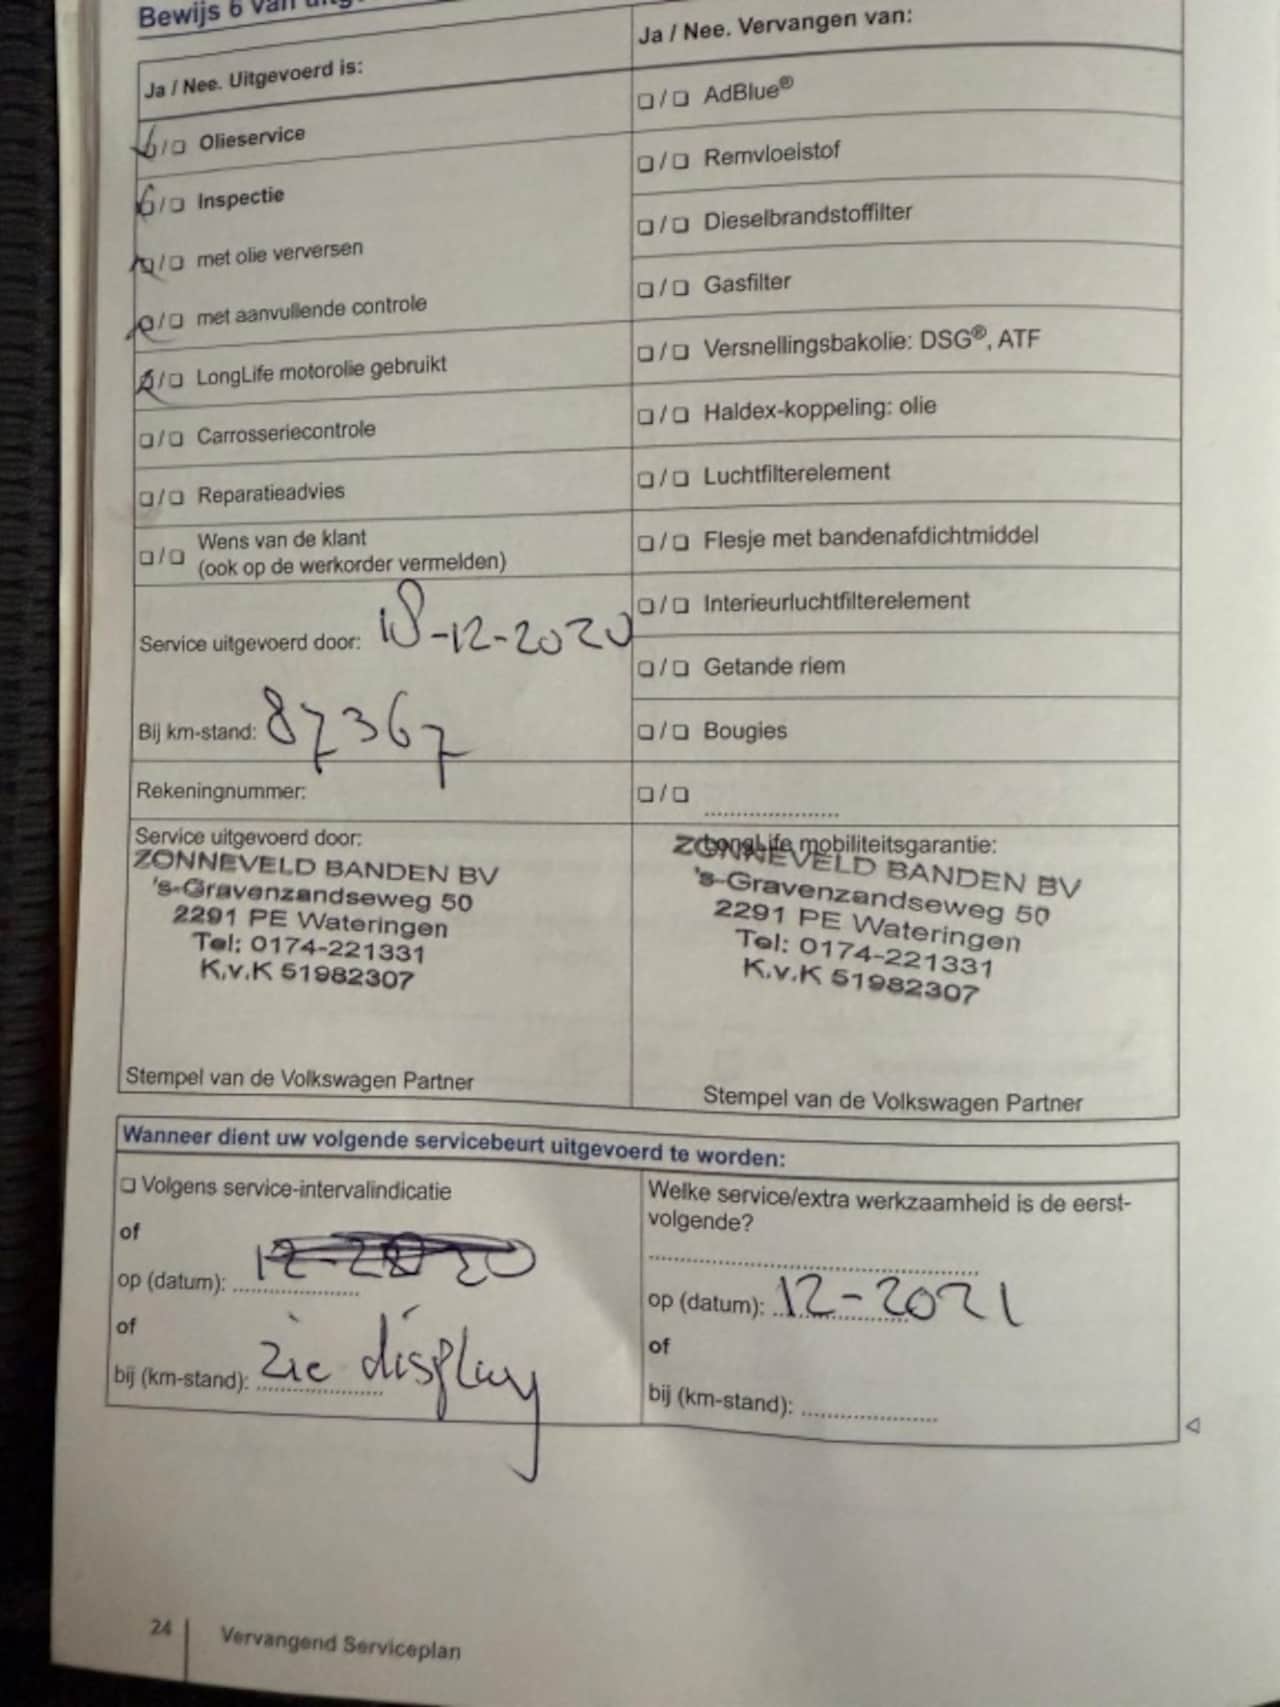 Bewijs 6 van
Ja / Nee. Uitgevoerd is:
☑/❏ Olieservice
☑/❏ Inspectie
☑/❏ met olie verversen
☑/❏ met aanvullende controle
☑/❏ LongLife motorolie gebruikt
❏/❏ Carrosseriecontrole
❏/❏ Reparatieadvies
❏/❏ Wens van de klant
(ook op de werkorder vermelden)
Service uitgevoerd door: 18-12-2020
Bij km-stand: 87367
Rekeningnummer:
Service uitgevoerd door:
ZONNEVELD BANDEN BV
's-Gravenzandseweg 50
2291 PE Wateringen
Tel: 0174-221331
K.v.K 51982307
Stempel van de Volkswagen Partner
Ja / Nee. Vervangen van:
❏/❏ AdBlue®
❏/❏ Remvloeistof
❏/❏ Dieselbrandstoffilter
❏/❏ Gasfilter
❏/❏ Versnellingsbakolie: DSG®, ATF
❏/❏ Haldex-koppeling: olie
❏/❏ Luchtfilterelement
❏/❏ Flesje met bandenafdichtmiddel
❏/❏ Interieurluchtfilterelement
❏/❏ Getande riem
❏/❏ Bougies
❏/❏ ....................
LongLife mobiliteitsgarantie:
ZONNEVELD BANDEN BV
's-Gravenzandseweg 50
2291 PE Wateringen
Tel: 0174-221331
K.v.K 51982307
Stempel van de Volkswagen Partner
Wanneer dient uw volgende servicebeurt uitgevoerd te worden:
❏ Volgens service-intervalindicatie
of
op (datum):
of
bij (km-stand): zie display
Welke service/extra werkzaamheid is de eerst-
volgende?
op (datum): 12-2021
of
bij (km-stand): ....................
24
Vervangend Serviceplan